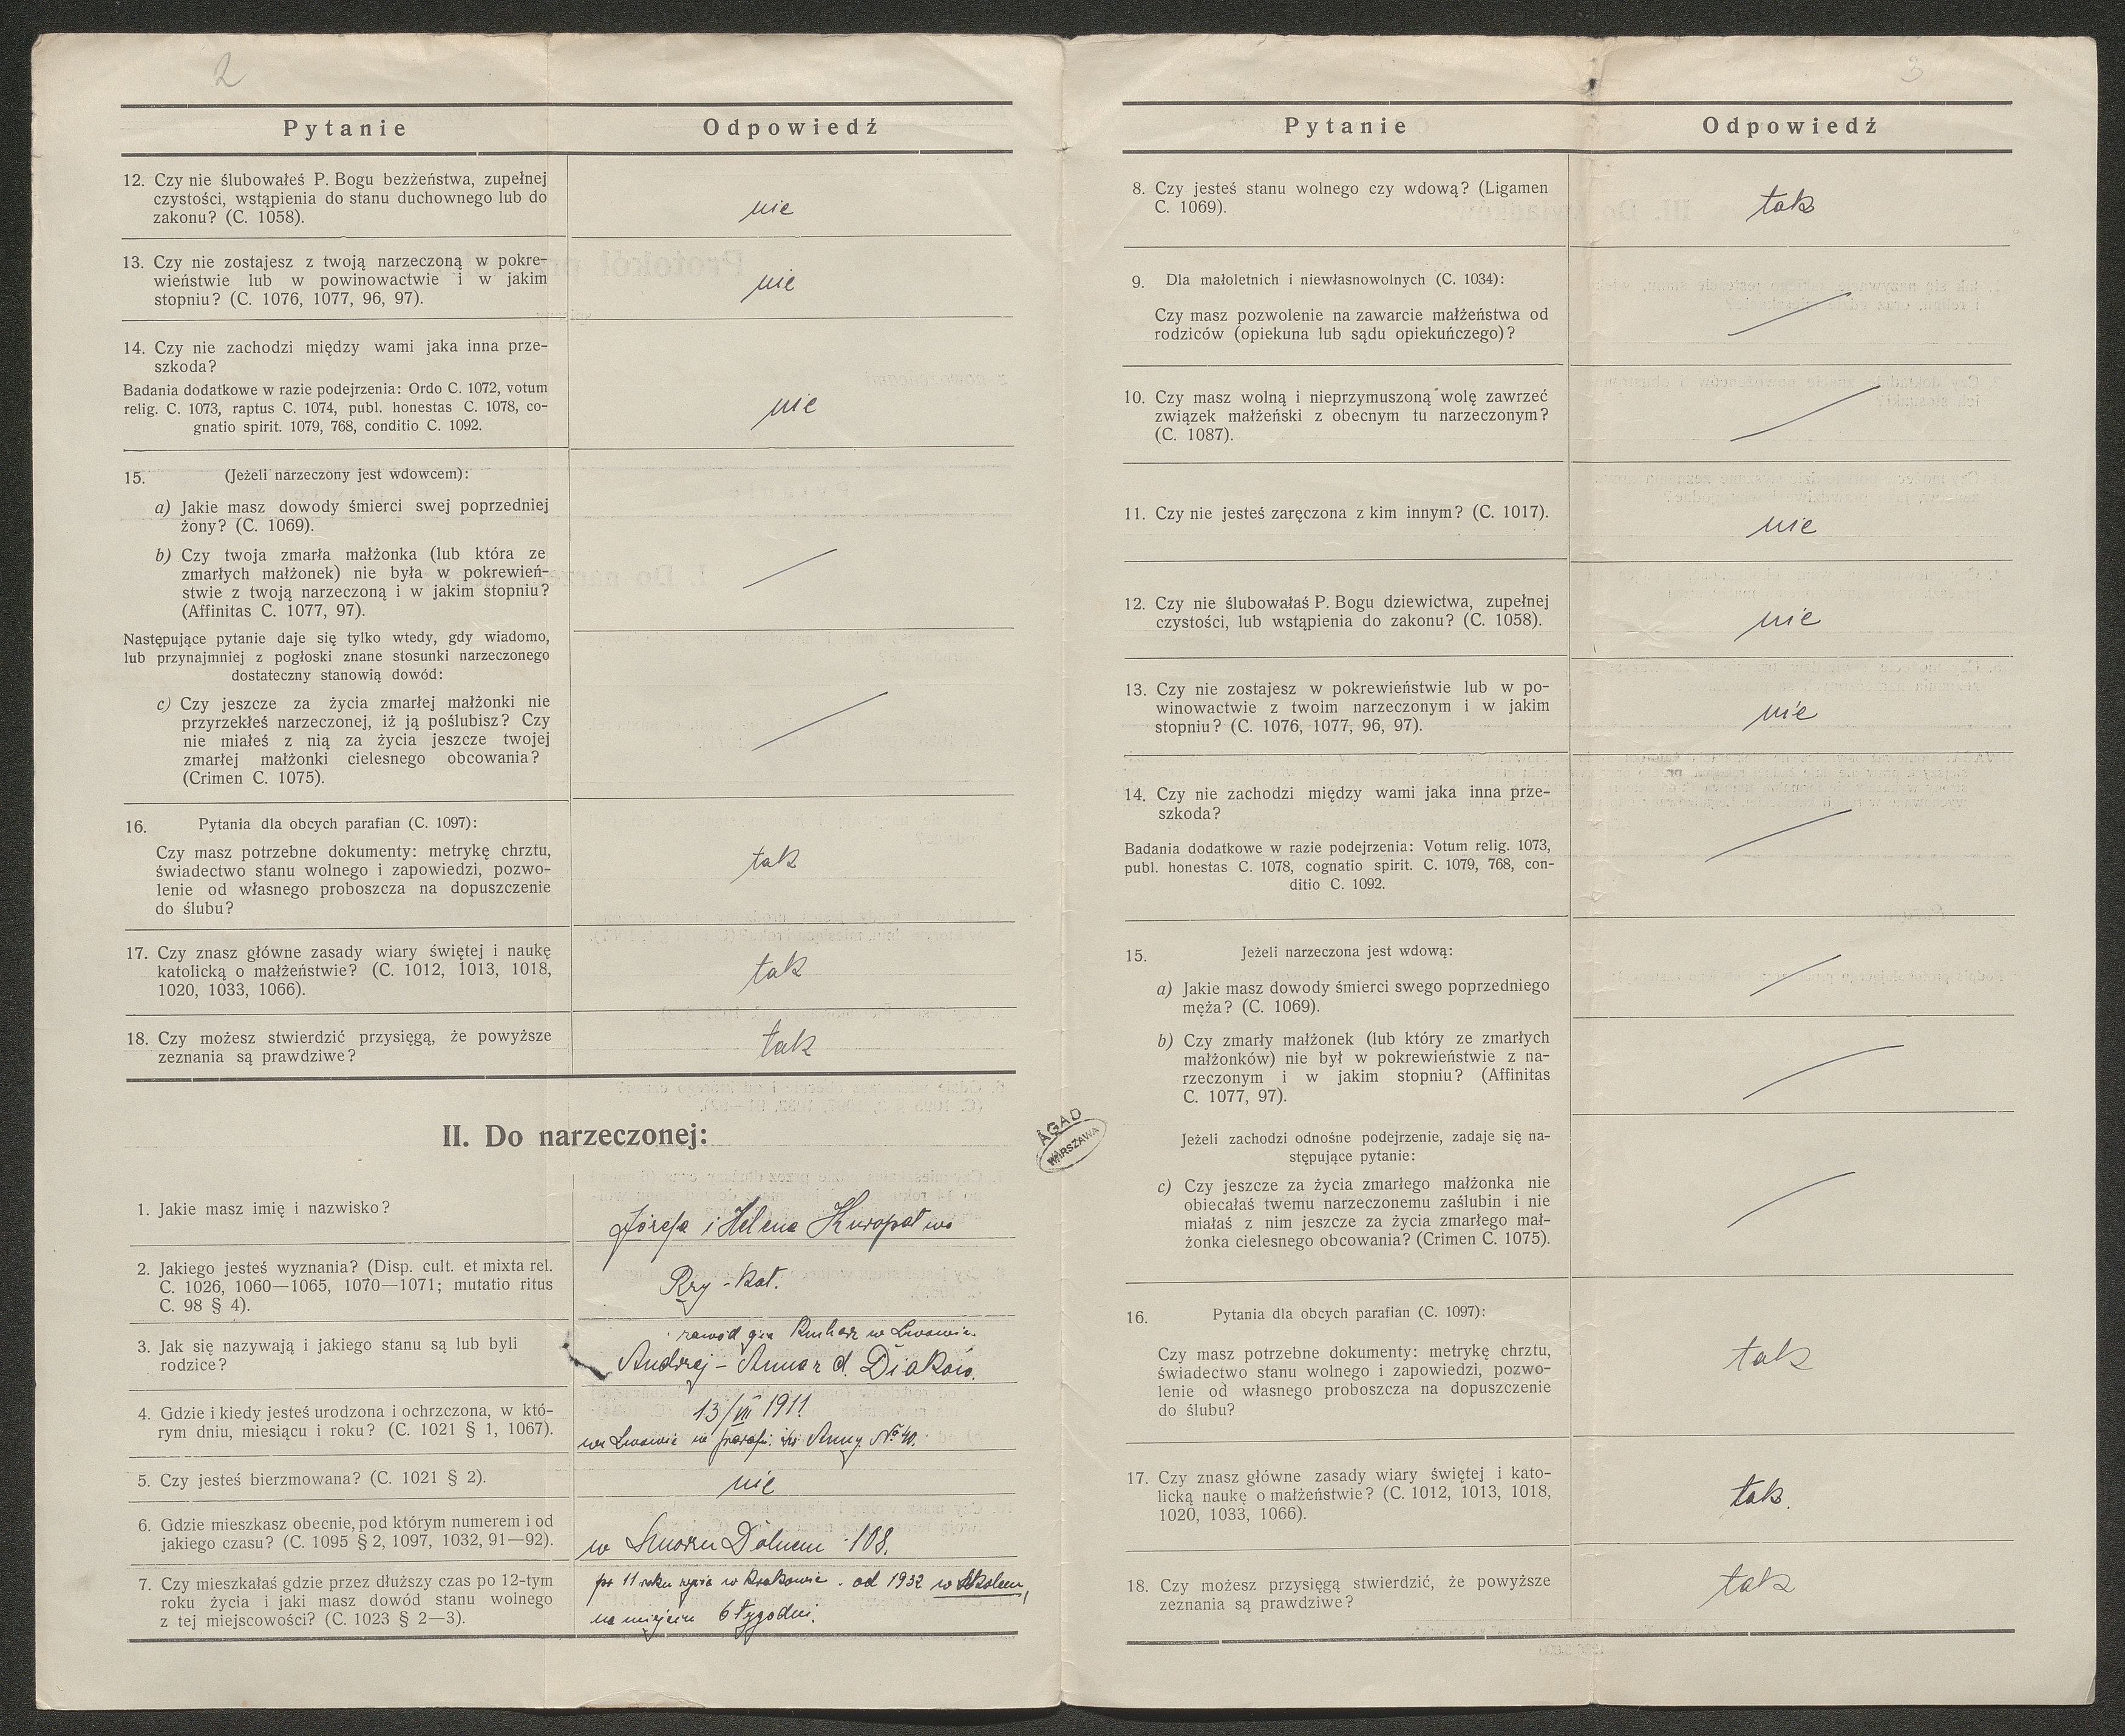 2
Pytanie
Odpowiedź
12. Czy nie ślubowałeś P. Bogu bezżeństwa, zupełnej
czystości, wstąpienia do stanu duchownego lub do
zakonu? (C. 1058).
nie
13. Czy nie zostajesz z twoją narzeczoną w pokre-
wieństwie lub w powinowactwie i w jakim
stopniu? (C. 1076, 1077, 96, 97).
nie
14. Czy nie zachodzi między wami jaka inna prze-
szkoda?
Badania dodatkowe w razie podejrzenia: Ordo C. 1072, votum
relig. C. 1073, raptus C. 1074, publ. honestas C. 1078, co-
gnatio spirit. 1079, 768, conditio C. 1092.
nie
15. (Jeżeli narzeczony jest wdowcem):
a) Jakie masz dowody śmierci swej poprzedniej
żony? (C. 1069).
b) Czy twoja zmarła małżonka (lub która ze
zmarłych małżonek) nie była w pokrewień-
stwie z twoją narzeczoną i w jakim stopniu?
(Affinitas C. 1077, 97).
Następujące pytanie daje się tylko wtedy, gdy wiadomo,
lub przynajmniej z pogłoski znane stosunki narzeczonego
dostateczny stanowią dowód:
c) Czy jeszcze za życia zmarłej małżonki nie
przyrzekłeś narzeczonej, iż ją poślubisz? Czy
nie miałeś z nią za życia jeszcze twojej
zmarłej małżonki cielesnego obcowania?
(Crimen C. 1075).
16. Pytania dla obcych parafian (C. 1097):
Czy masz potrzebne dokumenty: metrykę chrztu,
świadectwo stanu wolnego i zapowiedzi, pozwo-
lenie od własnego proboszcza na dopuszczenie
do ślubu?
tak
17. Czy znasz główne zasady wiary świętej i naukę
katolicką o małżeństwie? (C. 1012, 1013, 1018,
1020, 1033, 1066).
tak
18. Czy możesz stwierdzić przysięgą, że powyższe
zeznania są prawdziwe?
tak
II. Do narzeczonej:
1. Jakie masz imię i nazwisko?
Józefa i Helena Kuropatwa
2. Jakiego jesteś wyznania? (Disp. cult. et mixta rel.
C. 1026, 1060—1065, 1070—1071; mutatio ritus
C. 98 § 4).
Rzy-kat.
3. Jak się nazywają i jakiego stanu są lub byli
rodzice?
zawód Kucharz w Lwowie.
Andrzej – Anna z d. Diaków.
4. Gdzie i kiedy jesteś urodzona i ochrzczona, w któ-
rym dniu, miesiącu i roku? (C. 1021 § 1, 1067).
13/VII 1911
we Lwowie w parafii św Anny. No 40.
5. Czy jesteś bierzmowana? (C. 1021 § 2).
nie
6. Gdzie mieszkasz obecnie, pod którym numerem i od
jakiego czasu? (C. 1095 § 2, 1097, 1032, 91—92).
w Dolnem 108.
7. Czy mieszkałaś gdzie przez dłuższy czas po 12-tym
roku życia i jaki masz dowód stanu wolnego
z tej miejscowości? (C. 1023 § 2—3).
po 11 roku życia w Krakowie. od 1932 w Skolem,
na miejscu 6 tygodni.
AGAD
WARSZAWA
3
Pytanie
Odpowiedź
8. Czy jesteś stanu wolnego czy wdową? (Ligamen
C. 1069).
tak
9. Dla małoletnich i niewłasnowolnych (C. 1034):
Czy masz pozwolenie na zawarcie małżeństwa od
rodziców (opiekuna lub sądu opiekuńczego)?
10. Czy masz wolną i nieprzymuszoną wolę zawrzeć
związek małżeński z obecnym tu narzeczonym?
(C. 1087).
11. Czy nie jesteś zaręczona z kim innym? (C. 1017).
nie
12. Czy nie ślubowałaś P. Bogu dziewictwa, zupełnej
czystości, lub wstąpienia do zakonu? (C. 1058).
nie
13. Czy nie zostajesz w pokrewieństwie lub w po-
winowactwie z twoim narzeczonym i w jakim
stopniu? (C. 1076, 1077, 96, 97).
nie
14. Czy nie zachodzi między wami jaka inna prze-
szkoda?
Badania dodatkowe w razie podejrzenia: Votum relig. 1073,
publ. honestas C. 1078, cognatio spirit. C. 1079, 768, con-
ditio C. 1092.
15. Jeżeli narzeczona jest wdową:
a) Jakie masz dowody śmierci swego poprzedniego
męża? (C. 1069).
b) Czy zmarły małżonek (lub który ze zmarłych
małżonków) nie był w pokrewieństwie z na-
rzeczonym i w jakim stopniu? (Affinitas
C. 1077, 97).
Jeżeli zachodzi odnośne podejrzenie, zadaje się na-
stępujące pytanie:
c) Czy jeszcze za życia zmarłego małżonka nie
obiecałaś twemu narzeczonemu zaślubin i nie
miałaś z nim jeszcze za życia zmarłego mał-
żonka cielesnego obcowania? (Crimen C. 1075).
16. Pytania dla obcych parafian (C. 1097):
Czy masz potrzebne dokumenty: metrykę chrztu,
świadectwo stanu wolnego i zapowiedzi, pozwo-
lenie od własnego proboszcza na dopuszczenie
do ślubu?
tak
17. Czy znasz główne zasady wiary świętej i kato-
licką naukę o małżeństwie? (C. 1012, 1013, 1018,
1020, 1033, 1066).
tak.
18. Czy możesz przysięgą stwierdzić, że powyższe
zeznania są prawdziwe?
tak